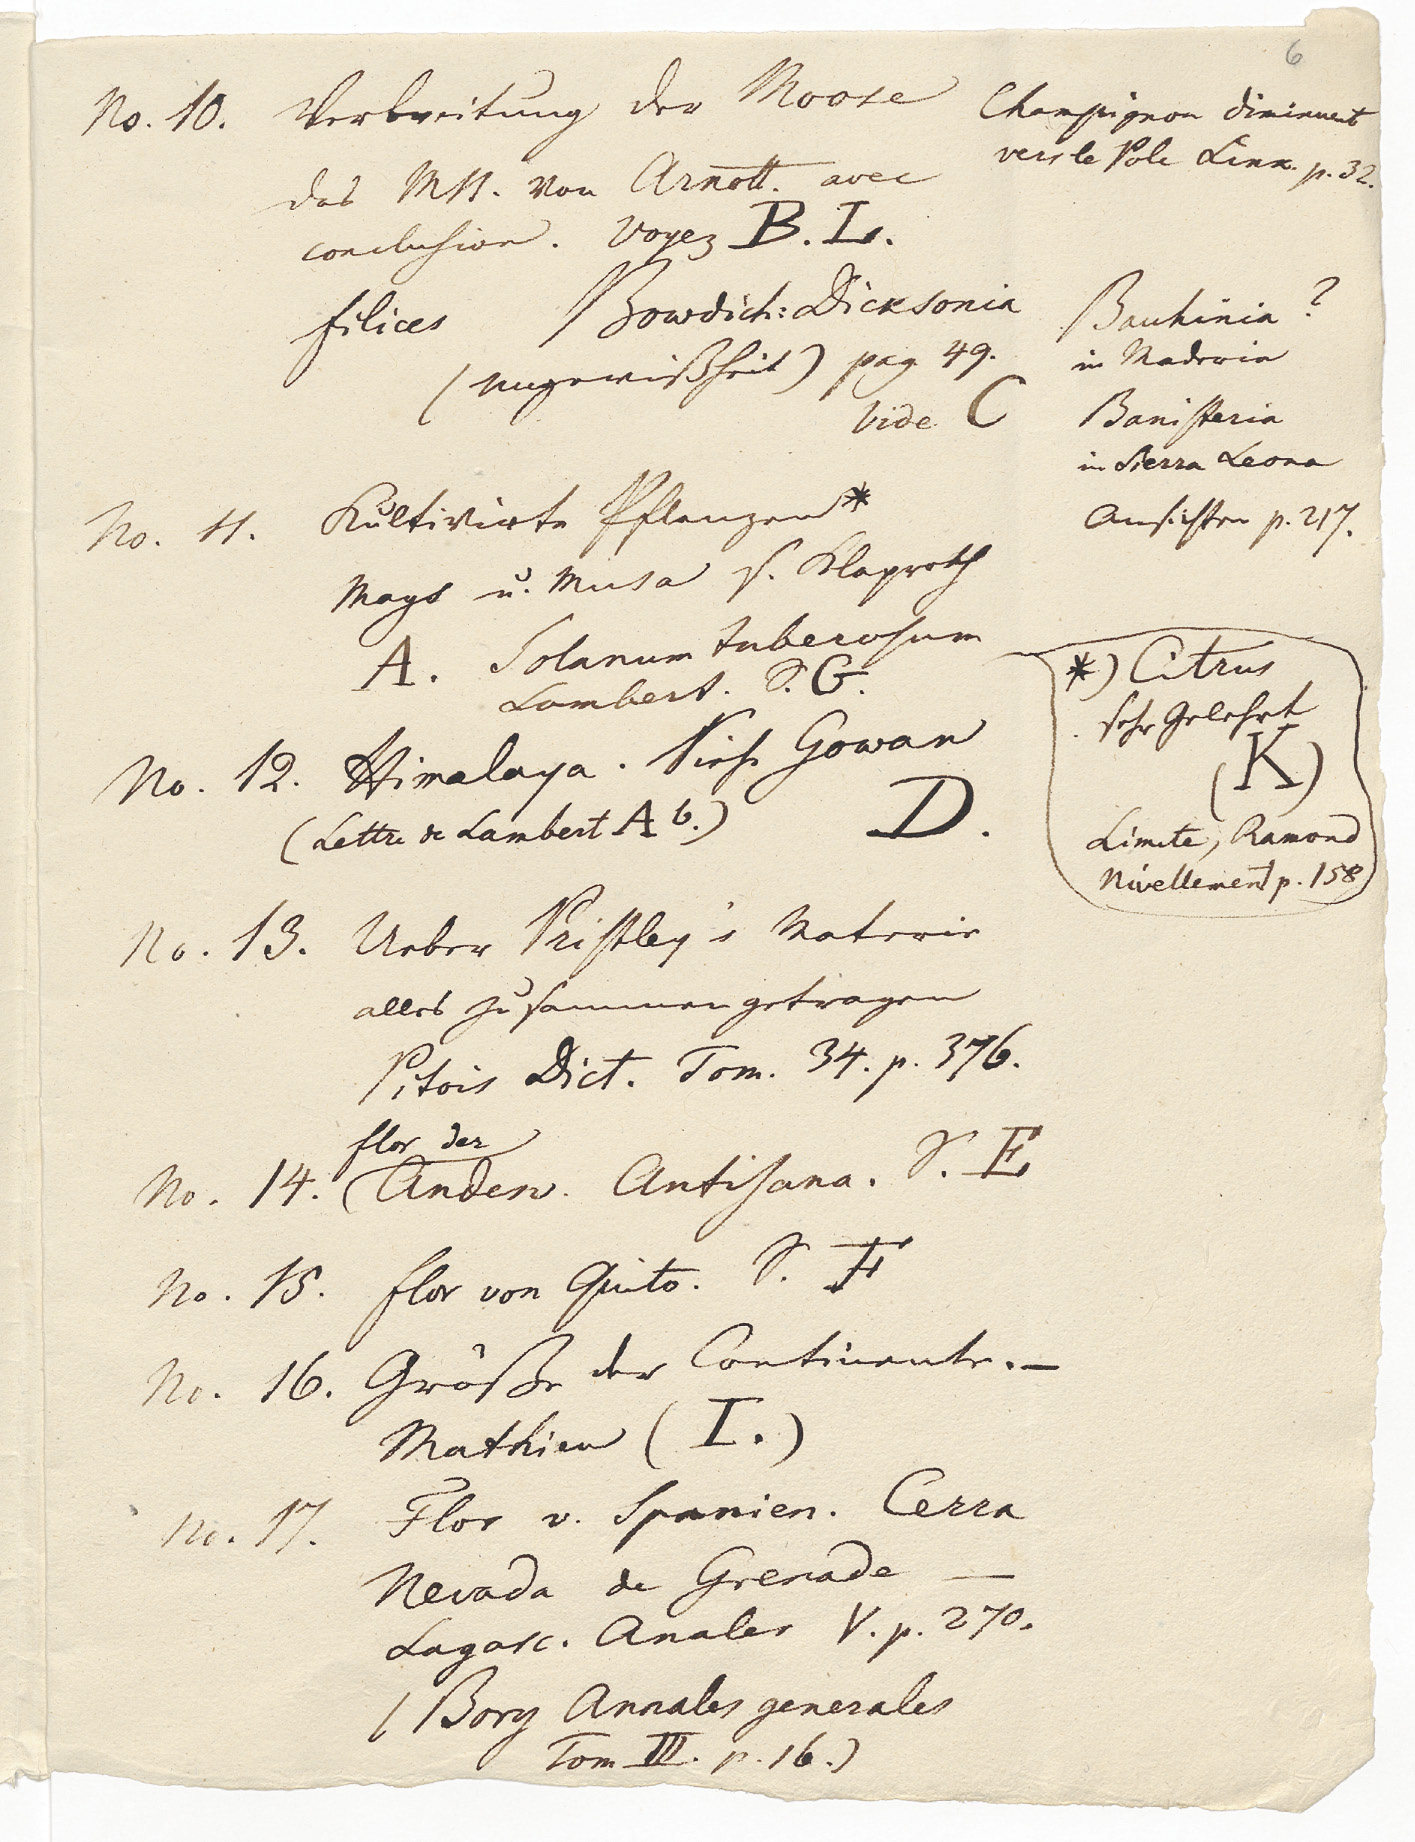 6
No. 10. Verbreitung der Moose
das MSS. von Arnott. avec
conclusion. Voyez B. L.
Champignon diminuent
vers le Pole Link. p. 32.
filices Bowdich: Dicksonia
(Ungewißheit) pag 49.
vide C
Bauhinia ?
in Maderia
Banisteria
in Sierra Leona
Ansichten p. 217.
No. 11. Kultivirte Pflanzen*
Mays u. Musa s. Klaproth
A. Solanum tuberosum
Lambert. S. G.
*) Citrus
sehr gelehrt
(K)
Limite, Ramond
Nivellement p. 158
No. 12. Himalaya. Sieh Gowan
(Lettre de Lambert A b.) D.
No. 13. Ueber Pristley's Materie
alles zusammengetragen
Pitois Dict. Tom. 34. p. 376.
flor der
No. 14. (Anden. Antisana. S. E
No. 15. flor von Quito. S. F
No. 16. Größe der Continente. —
Mathieu (I.)
No. 17. Flor v. Spanien. Cerra
Nevada de Grenade —
Lagasc. Anales V. p. 270.
(Bory Annales generales
Tom III. p. 16.)